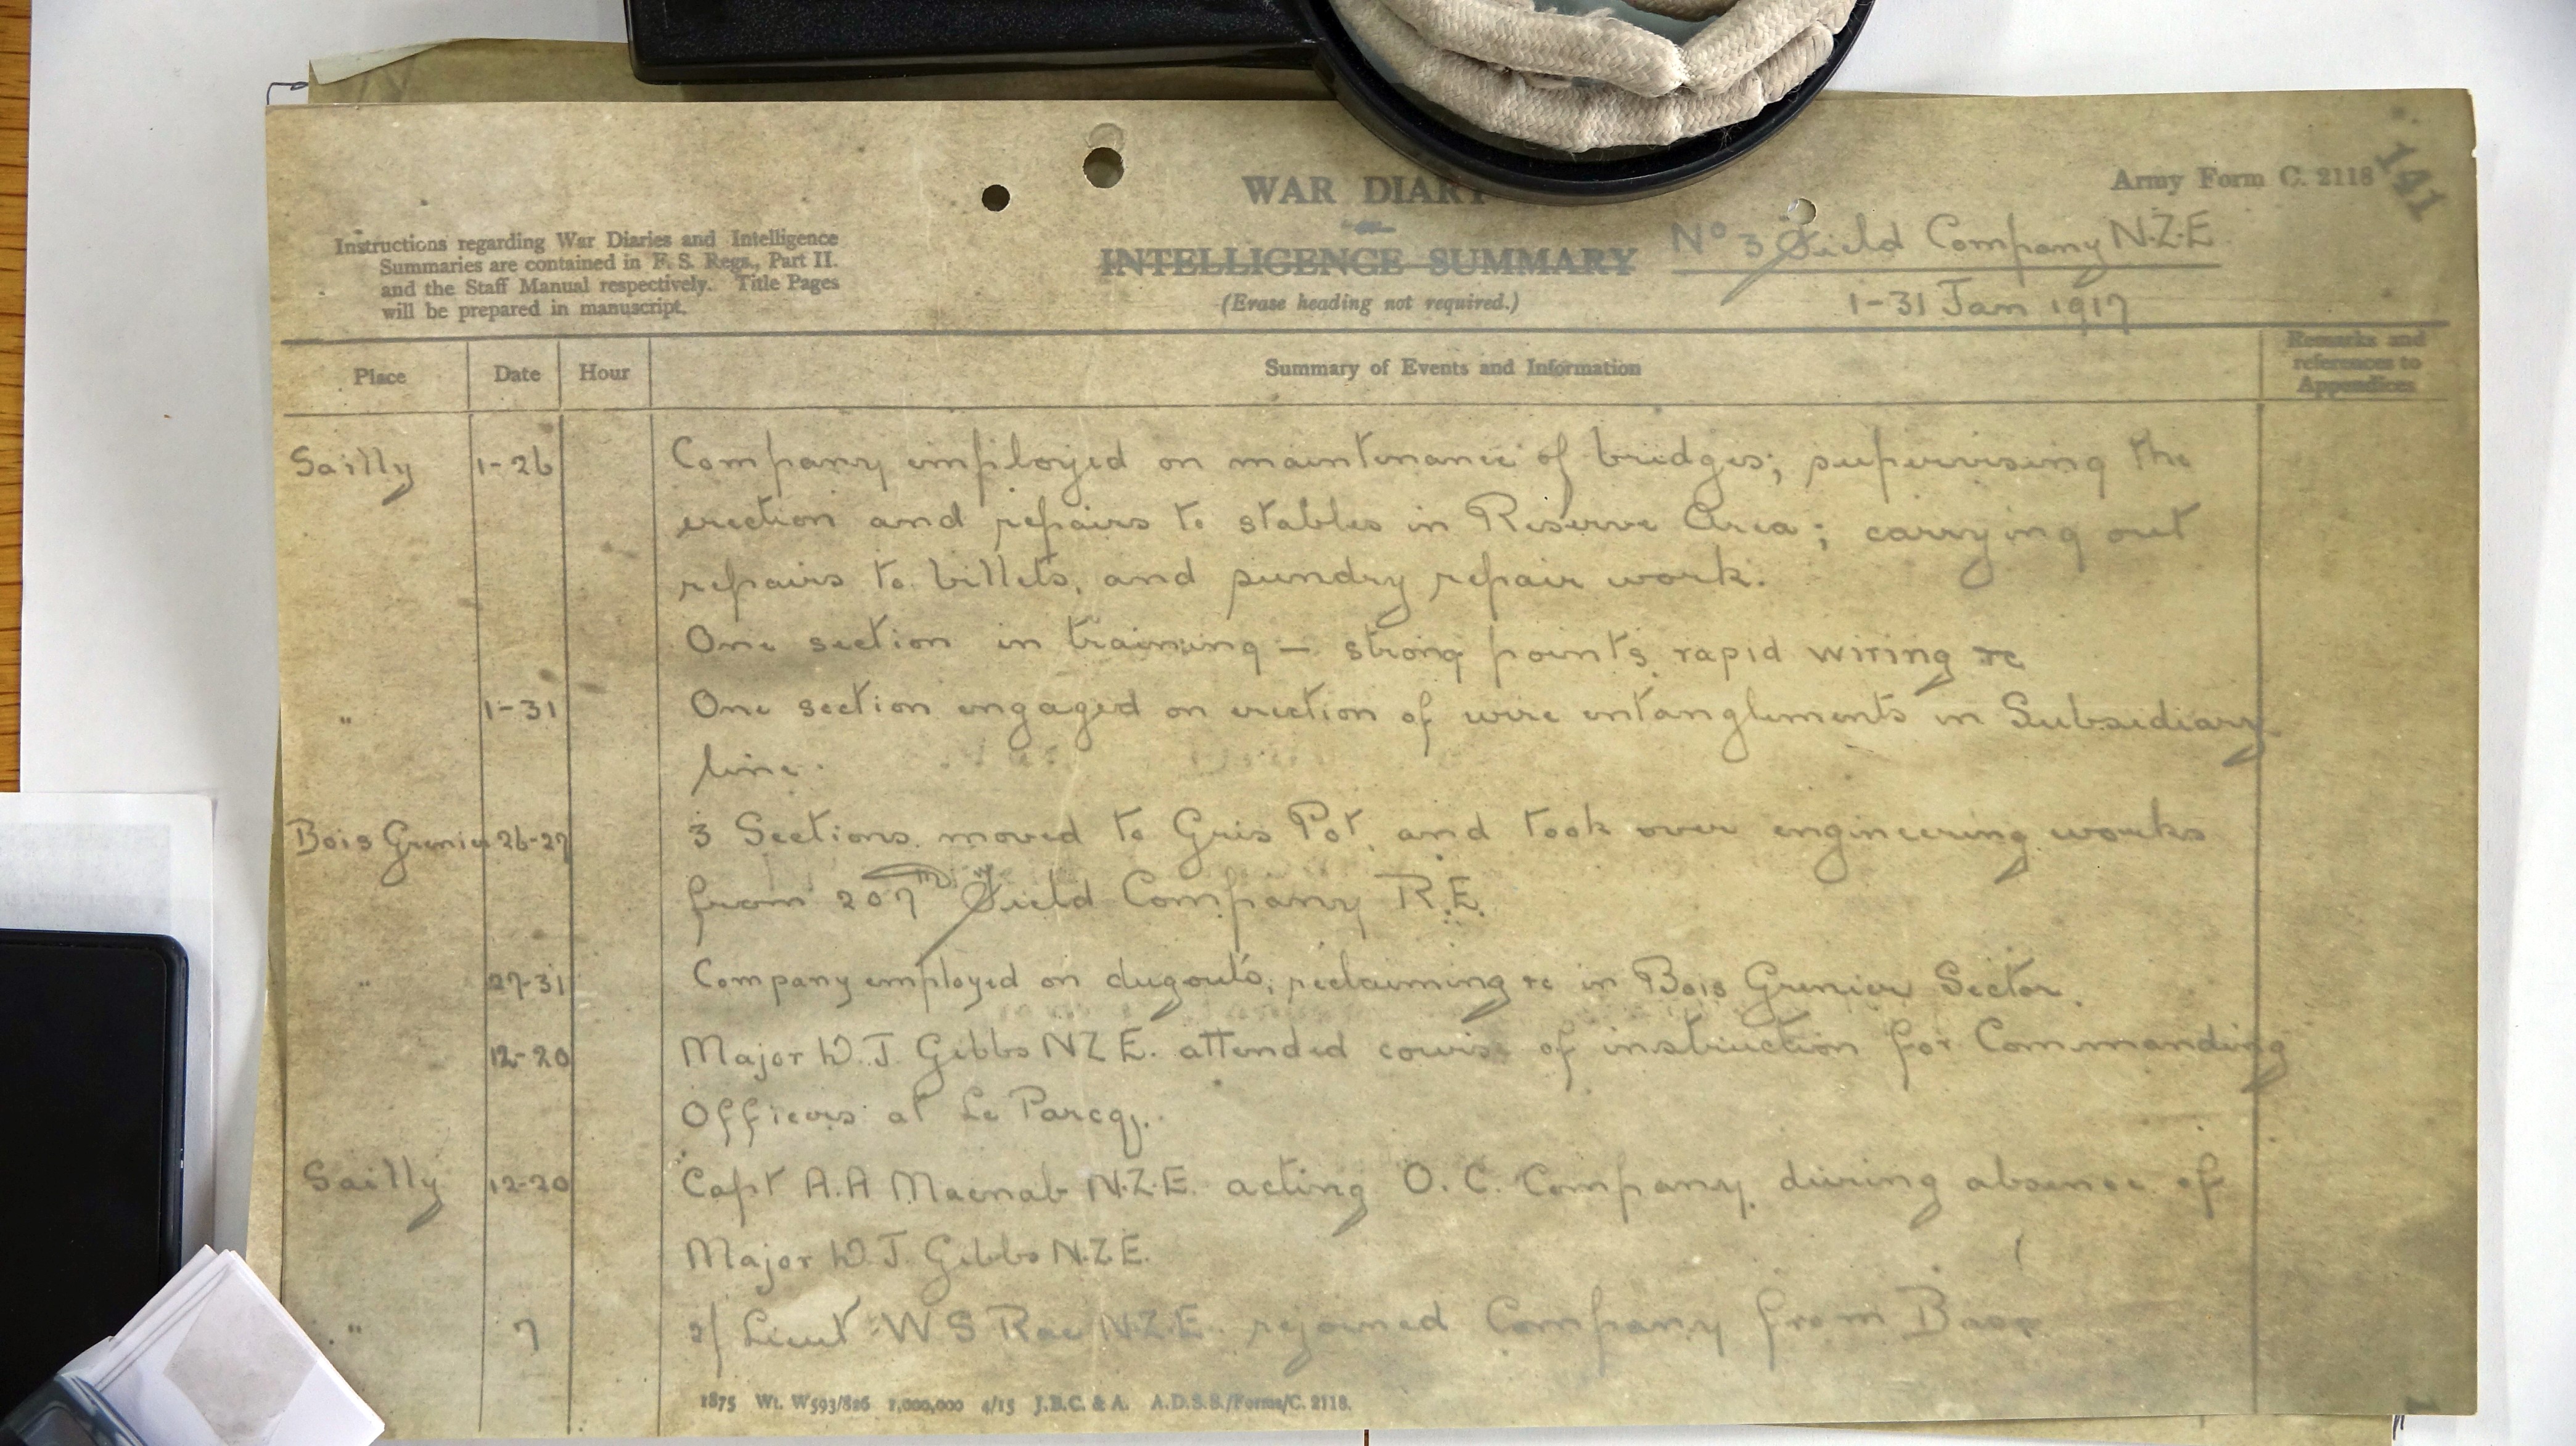 WAR DIARY
Army Form C. 2118
141
Instructions regarding War Diaries and Intelligence
Summaries are contained in F. S. Regs., Part II.
and the Staff Manual respectively. Title Pages
will be prepared in manuscript.
INTELLIGENCE SUMMARY
(Erase heading not required.)
No 3 Field Company N.Z.E.
1-31 Jan 1917
Place Date Hour Summary of Events and Information Remarks and references to Appendices
Sailly 1-26 Company employed on maintenance of bridges; supervising the
erection and repairs to stables in Reserve Area; carrying out
repairs to billets, and sundry repair work.
One section in training – strong points, rapid wiring etc
" 1-31 One section engaged on erection of wire entanglements in Subsidiary
line.
Bois Grenier 26-27 3 Sections moved to Gris Pot, and took over engineering works
from 207th Field Company R.E.
" 27-31 Company employed on dugouts, reclaiming etc in Bois Grenier Sector.
12-20 Major W.J. Gibbs NZE. attended course of instruction for Commanding
Officers at Le Parcq.
Sailly 12-20 Capt A.A Macnab N.Z.E. acting O.C. Company, during absence of
Major W.J. Gibbs N.Z.E.
" 7 2/ Lieut W S Rae N.Z.E. rejoined Company from Base
1875 Wt. W593/826 1,000,000 4/15 J.B.C. & A. A.D.S.S./Forms/C. 2118.